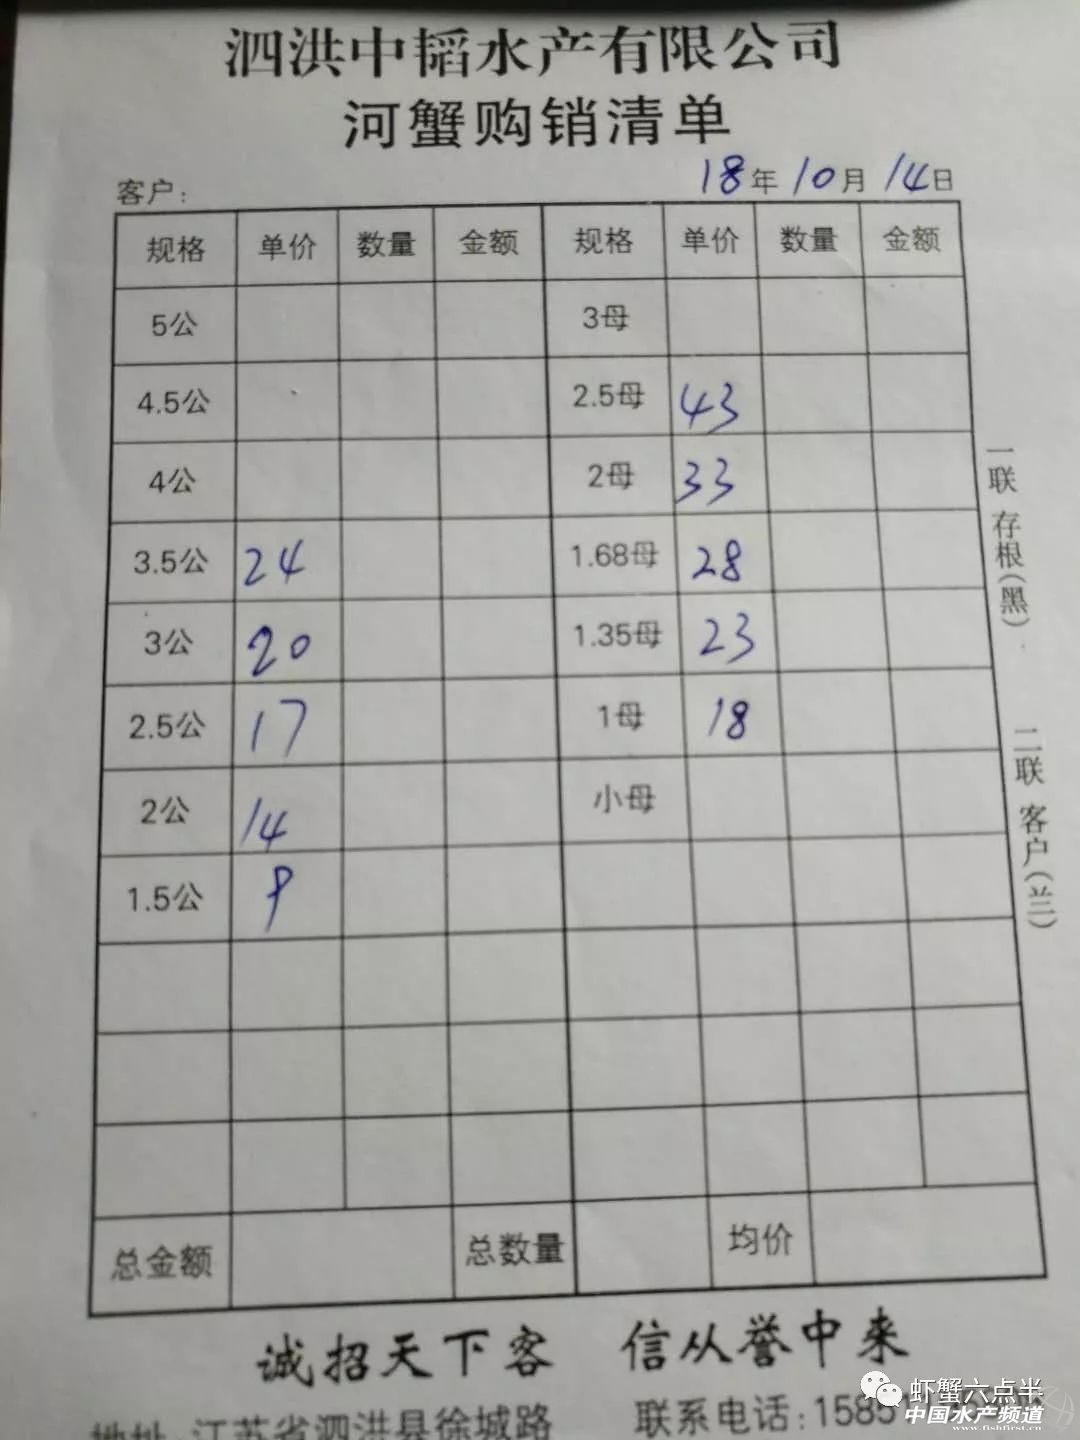 泗洪中韬水产有限公司
河蟹购销清单
客户: 18年10月14日
规格 单价 数量 金额 规格 单价 数量 金额
5公 3母
4.5公 2.5母 43
4公 2母 33
3.5公 24 1.68母 28
3公 20 1.35母 23
2.5公 17 1母 18
2公 14 小母
1.5公 9
总金额 总数量 均价
一联 存根(黑)
二联 客户(兰)
诚招天下客 信从誉中来
地址 江苏省泗洪县徐城路 联系电话:1585
虾蟹六点半
中国水产频道
www.fishfirst.cn